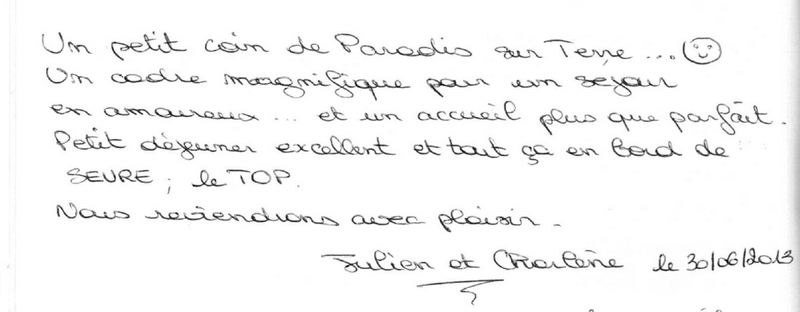 Un petit coin de Paradis sur Terre... ☺
Un cadre magnifique pour un sejour
en amoureux... et un accueil plus que parfait.
Petit déjeuner excellent et tout ça en bord de
SEVRE, le TOP.
Nous reviendrons avec plaisir.
Julien et Charlène le 30/06/2013